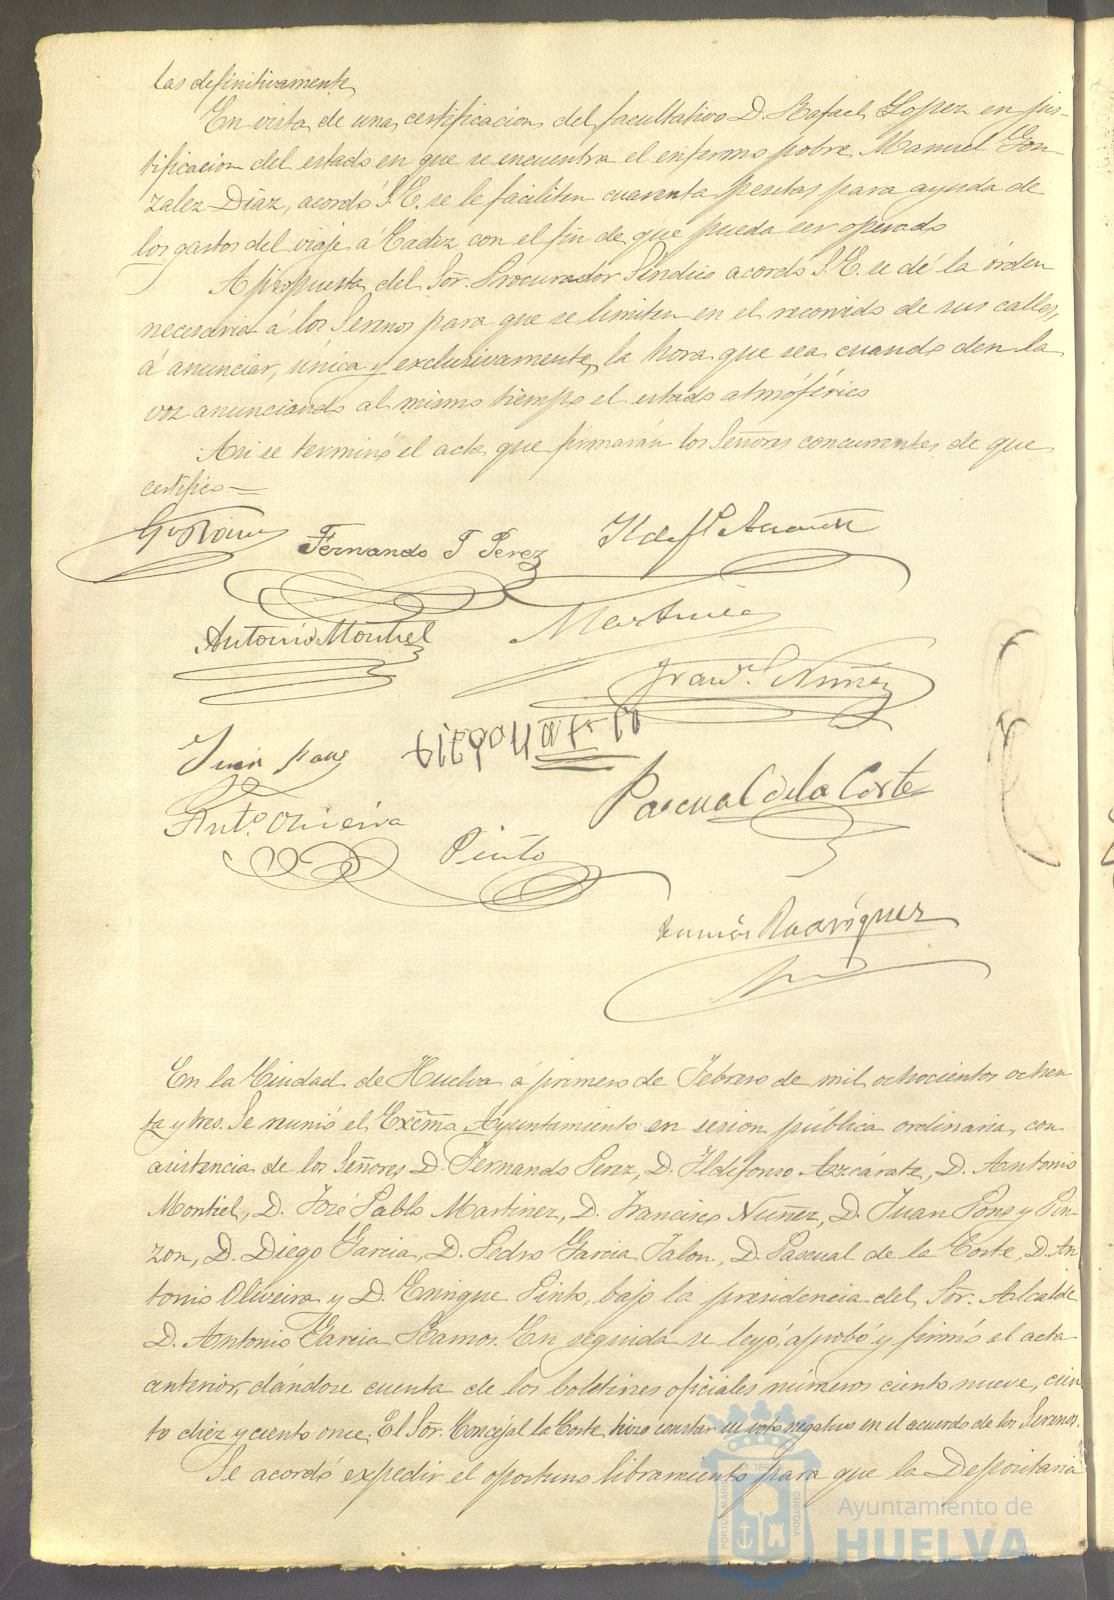 las definitivamente
En vista de una certificacion del facultativo D. Rafael Lopez en jus-
tificacion del estado en que se encuentra el enfermo pobre Manuel Gon
zalez Diaz, acordó S.E. se le faciliten cuarenta pesetas para ayuda de
los gastos del viaje á Cadiz con el fin de que pueda ser operado
A propuesta del Sor. Procurador Sindico acordó S.E. se dé la órden
necesaria á los Serenos para que se limiten en el recorrido de sus calles,
á anunciar, única y exclusivamente, la hora que sea cuando den la
voz anunciando al mismo tiempo el estado atmosférico
Asi se terminó el acta que firmarán los Señores concurrentes de que
certifico =
Fernando T Perez
Antonio Montiel
Martinez
Franco. Nuñez
Juan Pons
Pascual de la Corte
Anto. Oliveira
Pinto
Rodriguez
En la Ciudad de Huelva á primero de Febrero de mil ochocientos ochen
ta y tres. Se reunió el Excmo Ayuntamiento en sesion pública ordinaria, con
asistencia de los Señores D. Fernando Perez, D. Ildefonso Azcárate, D. Antonio
Montiel, D. José Pablo Martinez, D. Francisco Nuñez, D. Juan Pons y Pin-
zon, D. Diego Garcia, D. Pedro Garcia Jalon, D. Pascual de la Corte, D. An
tonio Oliveira y D. Enrique Pinto, bajo la presidencia del Sor. Alcalde
D. Antonio Garcia Ramos. En seguida se leyó, aprobó y firmó el acta
anterior, dándose cuenta de los boletines oficiales números ciento nueve, cien
to diez y ciento once. El Sor. Concejal la Corte hizo constar su voto negativo en el acuerdo de los Serenos.
Se acordó expedir el oportuno libramiento para que la Depositaria
Ayuntamiento de
HUELVA